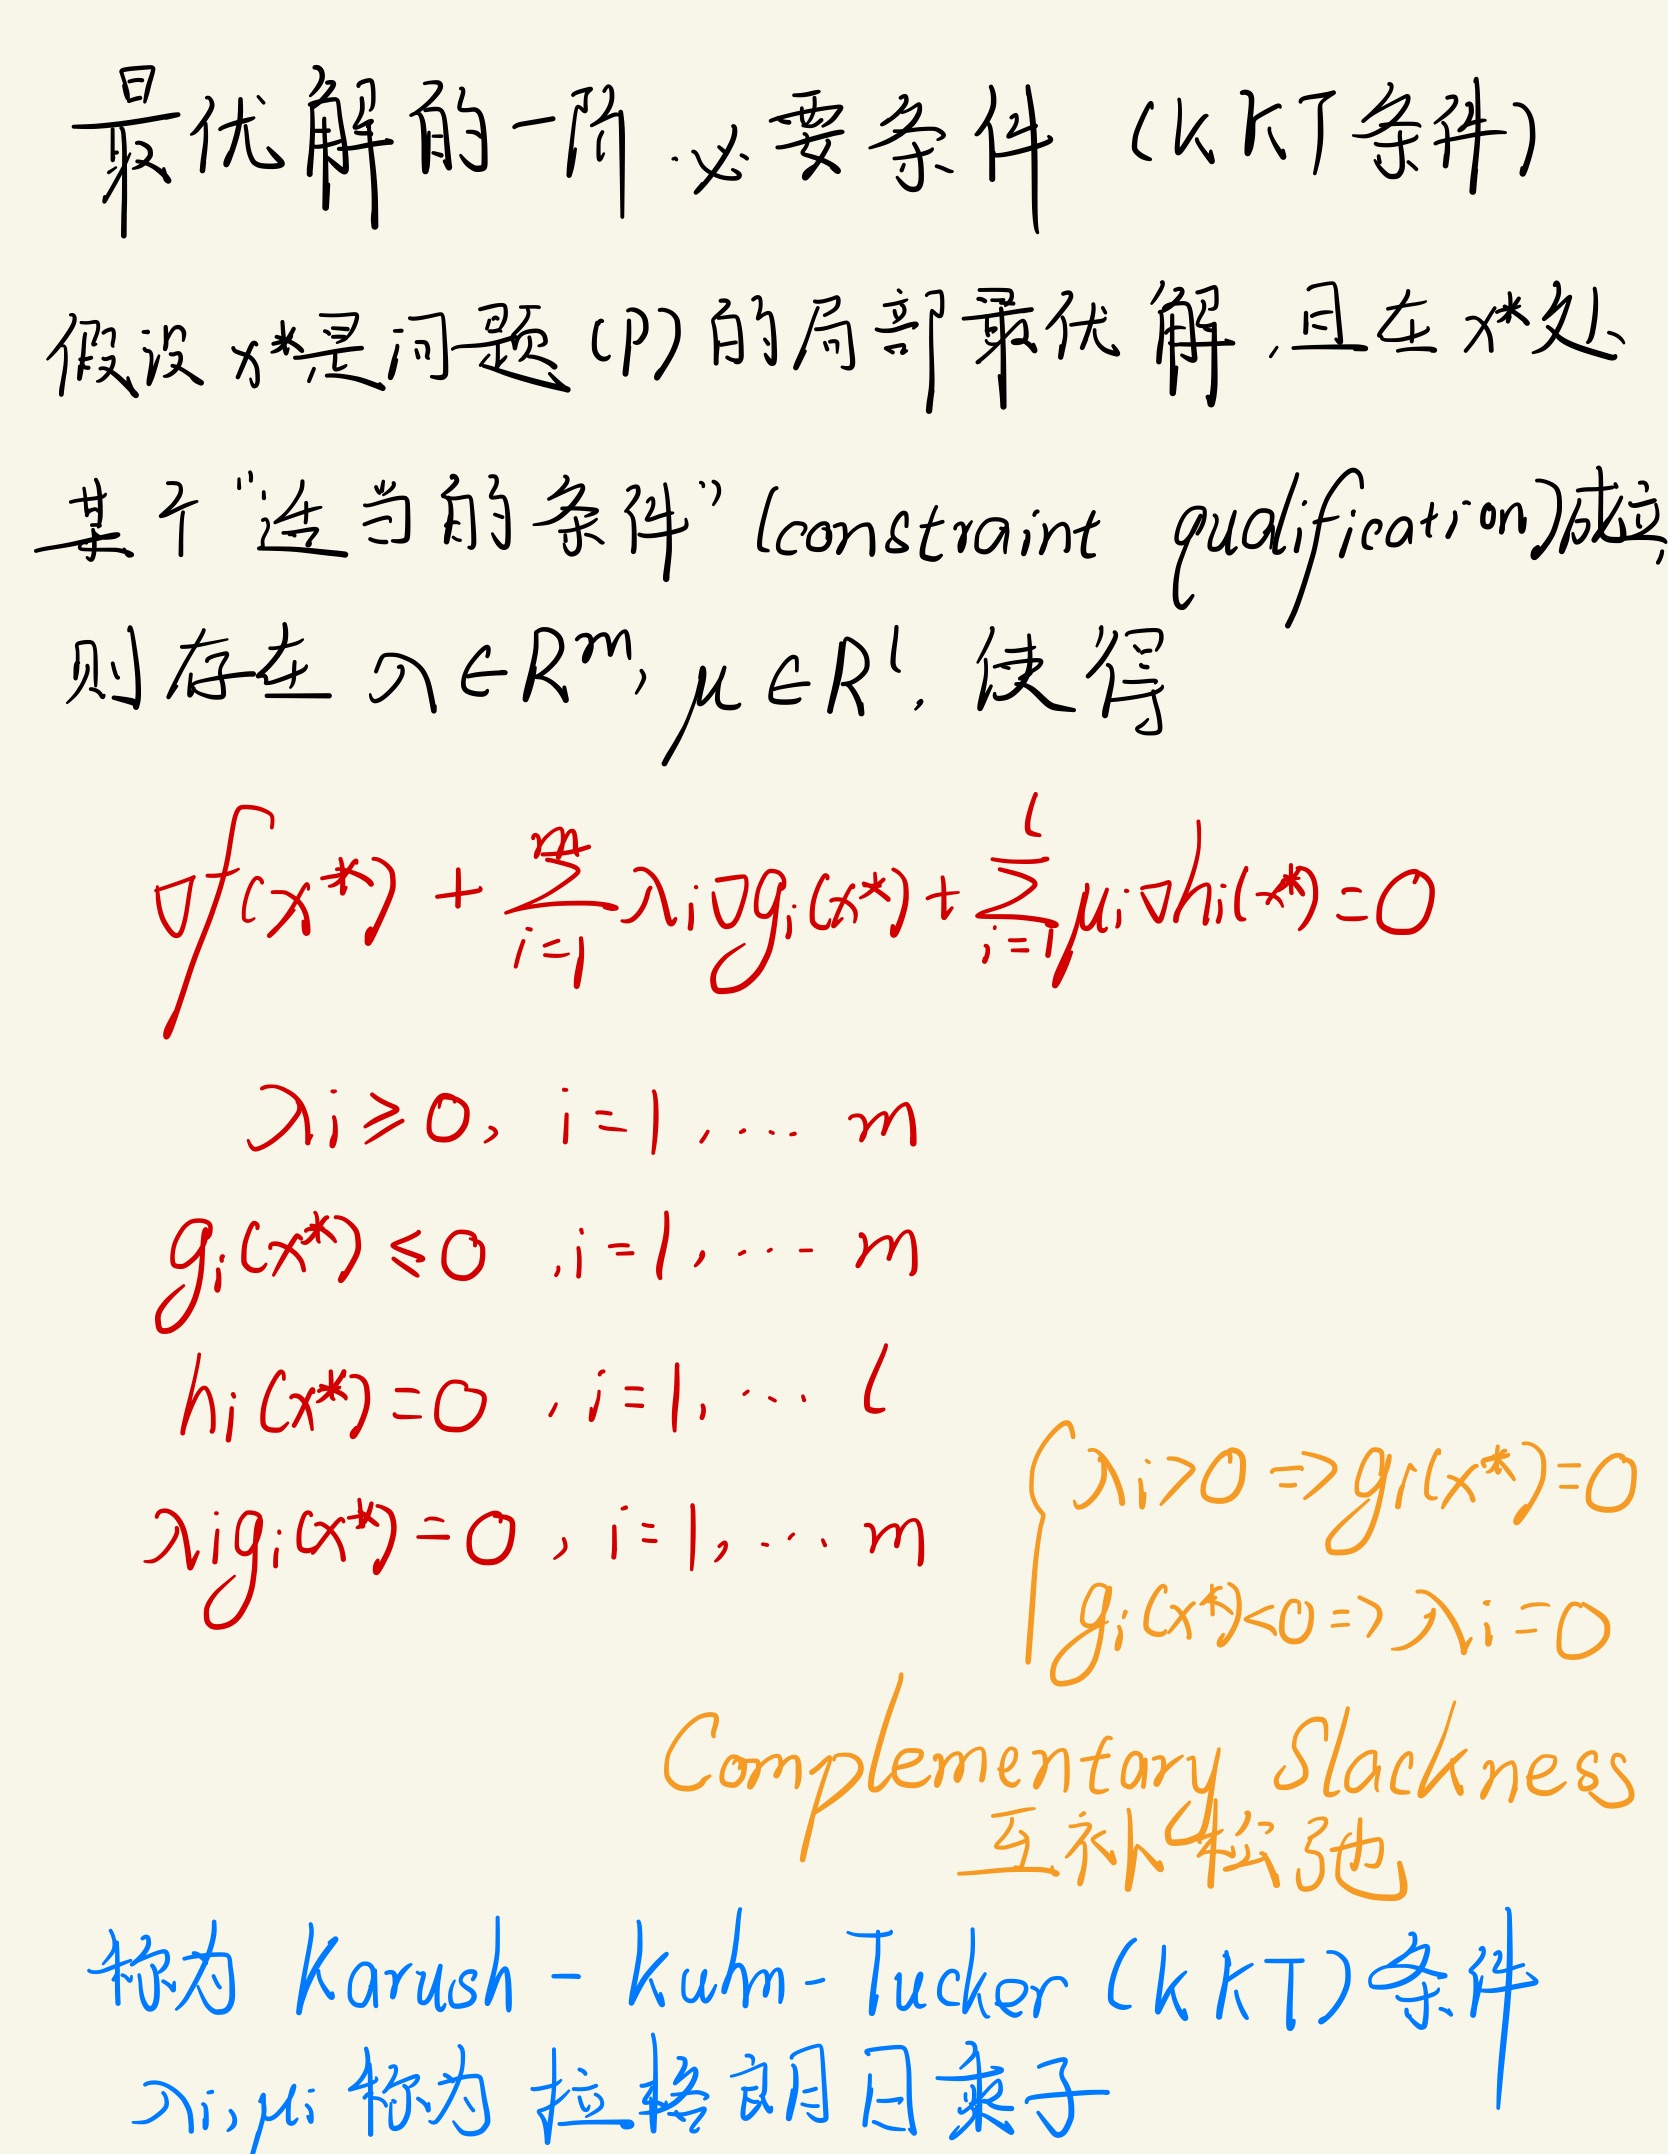 最优解的一阶必要条件 (KKT条件)
假设 x*是问题(P)的局部最优解,且在x*处
某个"适当的条件"(constraint qualification)成立,
则存在 λ∈Rᵐ, μ∈Rˡ, 使得
∇f(x*) + ∑_{i=1}^{m} λi∇gi(x*) + ∑_{i=1}^{l} μi∇hi(x*) = 0
λi ≥ 0, i=1,… m
gi(x*) ≤ 0 ,i=1,… m
hi(x*) = 0 ,i=1,… l
λigi(x*) = 0, i=1,… m
{ λi>0 => gi(x*)=0
gi(x*)<0 => λi=0
Complementary Slackness
互补松弛
称为 Karush - Kuhn - Tucker (KKT)条件
λi,μi 称为 拉格朗日乘子